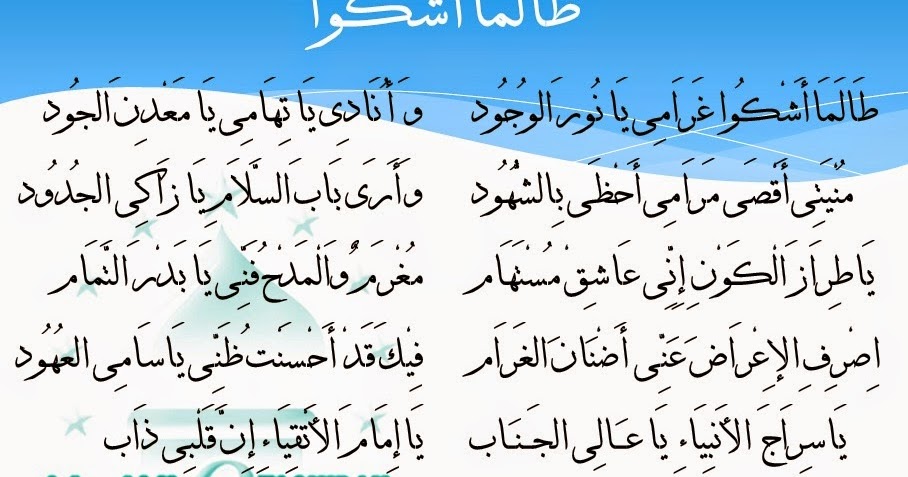 طَالَمَا أَشْكُوا
طَالَمَا أَشْكُوا غَرَامِى يَا نُورَ الوُجُود وَأُنَادِى يَا تِهَامِى يَا مَعْدِنَ الجُود
مُنْيَتِى أَقْصَى مَرَامِى أَحْظَى بِالشُّهُود وَأَرَى بَابَ السَّلَامِ يَا زَاكِى الجُدُود
يَا طِرَازَ الْكَوْنِ إِنِّى عَاشِقْ مُسْتَهَام مُغْرَمٌ وَالْمَدْحُ فَنِّى يَا بَدْرَ التَّمَام
اِصْرِفِ الإِعْرَاضَ عَنِّى أَضْنَانَ الغَرَام فِيْكَ قَدْ أَحْسَنْتُ ظَنِّى يَا سَامِى العُهُود
يَا سِرَاجَ الأَنْبِيَاءِ يَا عَالِى الجَنَاب يَا إِمَامَ الأَتْقِيَاءِ إِنَّ قَلْبِى ذَاب